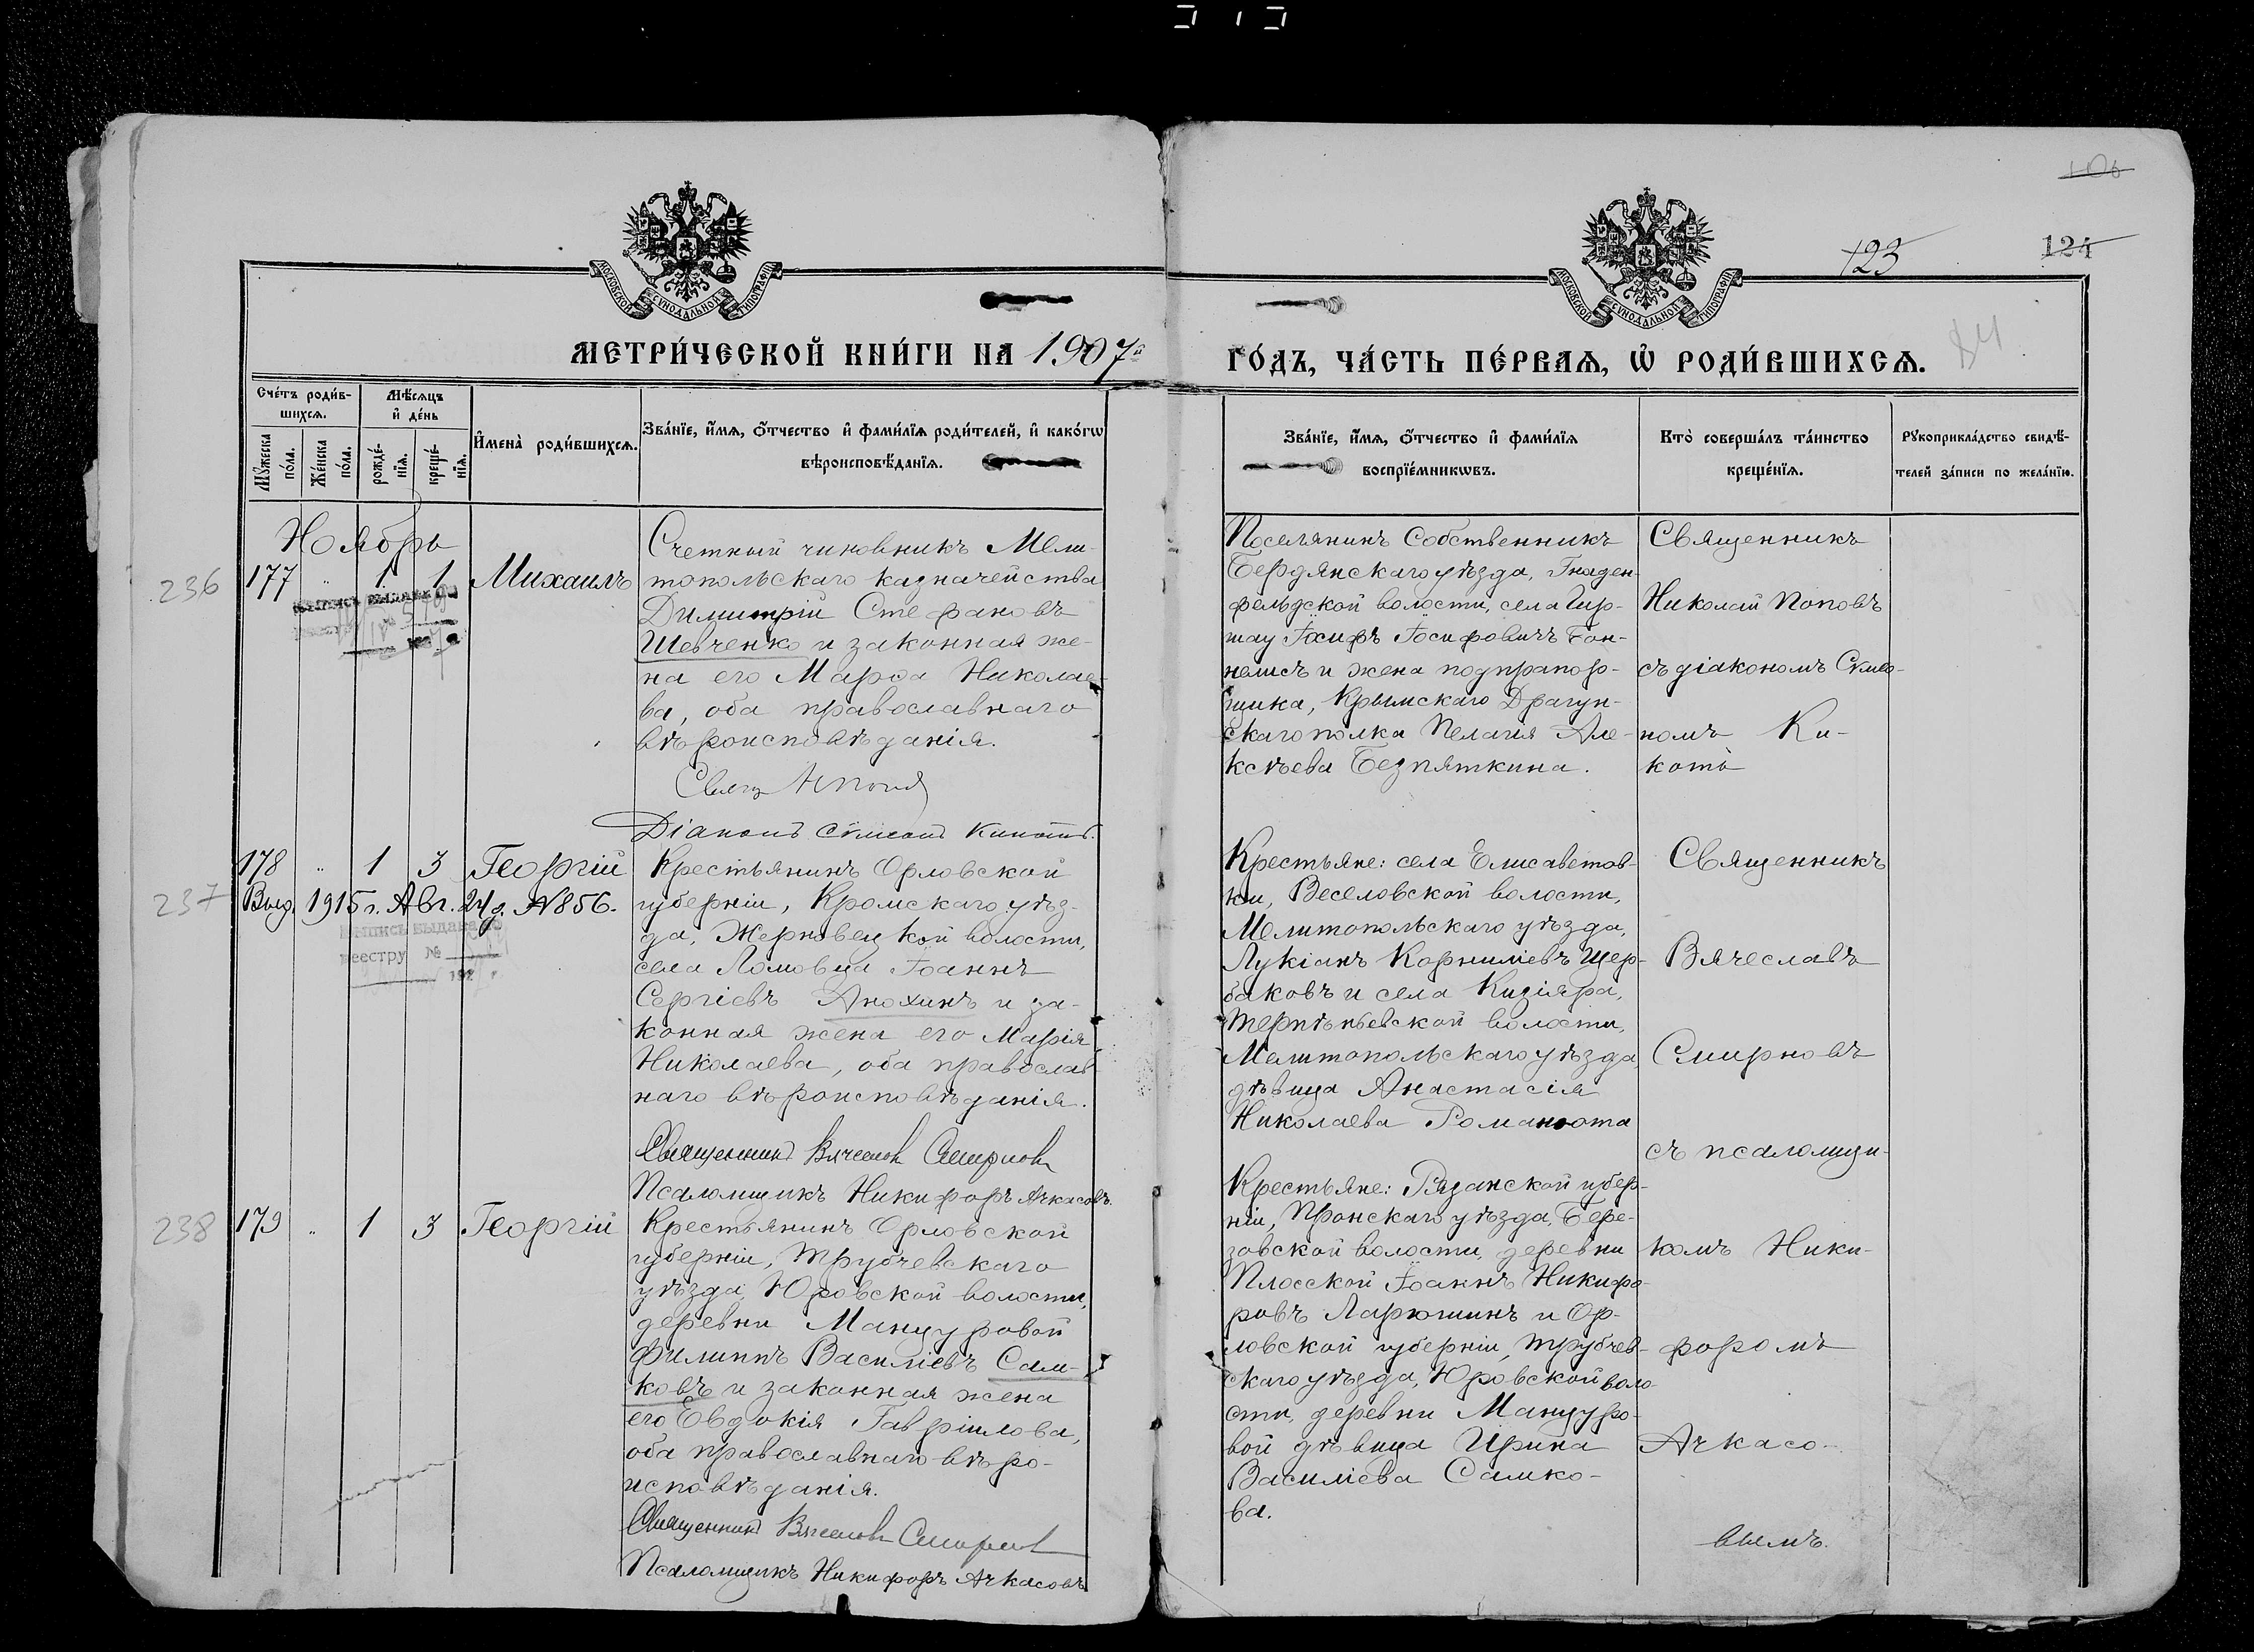 106
123
124
84
МОСКОВСКОЙ СѴНОДАЛЬНОЙ ТИПОГРАФІИ
МОСКОВСКОЙ СѴНОДАЛЬНОЙ ТИПОГРАФІИ
МЕТРИ́ЧЕСКОЙ КНИ́ГИ НА 1907й
ГО́ДЪ, ЧА́СТЬ ПЕ́РВАѦ, Ѡ҆ РОДИ́ВШИХСѦ.
Сче́тъ роди́в-
шихсѧ.
Мꙋ́жеска по́ла.
Же́нска по́ла.
Мѣ́сѧцъ
и҆ де́нь
рожде́-
нїѧ.
креще́-
нїѧ.
И҆мена̀ роди́вшихсѧ.
Зва́нїе, и҆́мѧ, ѻ҆́тчество и҆ фами́лїѧ роди́телей, и҆ како́гѡ
вѣроисповѣ́данїѧ.
Зва́нїе, и҆́мѧ, ѻ҆́тчество и҆ фами́лїѧ
воспрїе́мникѡвъ.
Кто̀ соверша́лъ та́инство
креще́нїѧ.
Рꙋкоприкла́дство свидѣ́-
телей за́писи по жела́нїю.
Ноябрь
236
177 " 1 1
Михаилъ
выпись выдана по
Счетный чиновникъ Мели-
топольскаго казначейства
Димитрій Стефановъ
Шевченко и законная же-
на его Марѳа Николае-
ва, оба православнаго
вѣроисповѣданія.
Свящ НПопов
Діаконъ Сѵмеонъ Кикоть.
Поселянинъ Собственникъ
Бердянскаго уѣзда, Гнаден-
фельдской волости, села Гир-
шау Іосифъ Іосифовичъ Гон-
нелисъ и жена подпрапор-
щика, Крымскаго Драгун-
скаго полка Пелагія Але-
ксѣева Безпяткина.
Священникъ
Николай Поповъ
съ діакономъ Сѵмео-
номъ Ки-
коть
237
178 " 1 3 Георгій
Выд. 1915 г. Авг. 24 д. №856.
выпись выдана по
реестру №
192 г
Крестьянинъ Орловской
губерніи, Кромскаго уѣз-
да, Жерновецкой волости,
села Ломовца Іоаннъ
Сергіевъ Анохинъ и за-
конная жена его Марія
Николаева, оба православ-
наго вѣроисповѣданія.
Священникъ Вячеслав Смирновъ
Псаломщикъ Никифоръ Ачкасовъ.
Крестьяне: села Елисаветов-
ки, Веселовской волости,
Мелитопольскаго уѣзда,
Лукіанъ Корниліевъ Щер-
баковъ и села Кизіяра,
Терпѣньевской волости,
Мелитопольскаго уѣзда,
дѣвица Анастасія
Николаева Романюта
Священникъ
Вячеславъ
Смирновъ
съ псаломщи-
комъ Ники-
форомъ
Ачкасо-
вымъ.
238
179 " 1 3 Георгій
Крестьянинъ Орловской
губерніи, Трубчевскаго
уѣзда, Юровской волости,
деревни Манцуровой
Филиппъ Василіевъ Сам-
ковъ и законная жена
его Евдокія Гавріилова,
оба православнаго вѣро-
исповѣданія.
Священникъ Вячеслав Смирновъ
Псаломщикъ Никифоръ Ачкасовъ
Крестьяне: Рязанской губер-
ніи, Пронскаго уѣзда, Бере-
зовской волости, деревни
Плосской Іоаннъ Никифо-
ровъ Ларюшинъ и Ор-
ловской губерніи, Трубчев-
скаго уѣзда, Юровской воло-
сти, деревни Манцуро-
вой дѣвица Ирина
Василіева Самко-
ва.